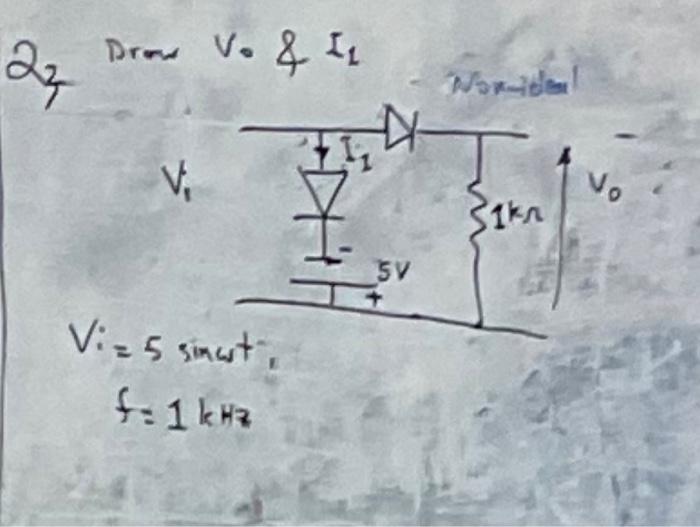 Q2 Draw Vo & I1
Non-ideal
I1
Vi
Vo
1kΩ
-
5V
+
Vi = 5 sinωt,
f = 1 kHz